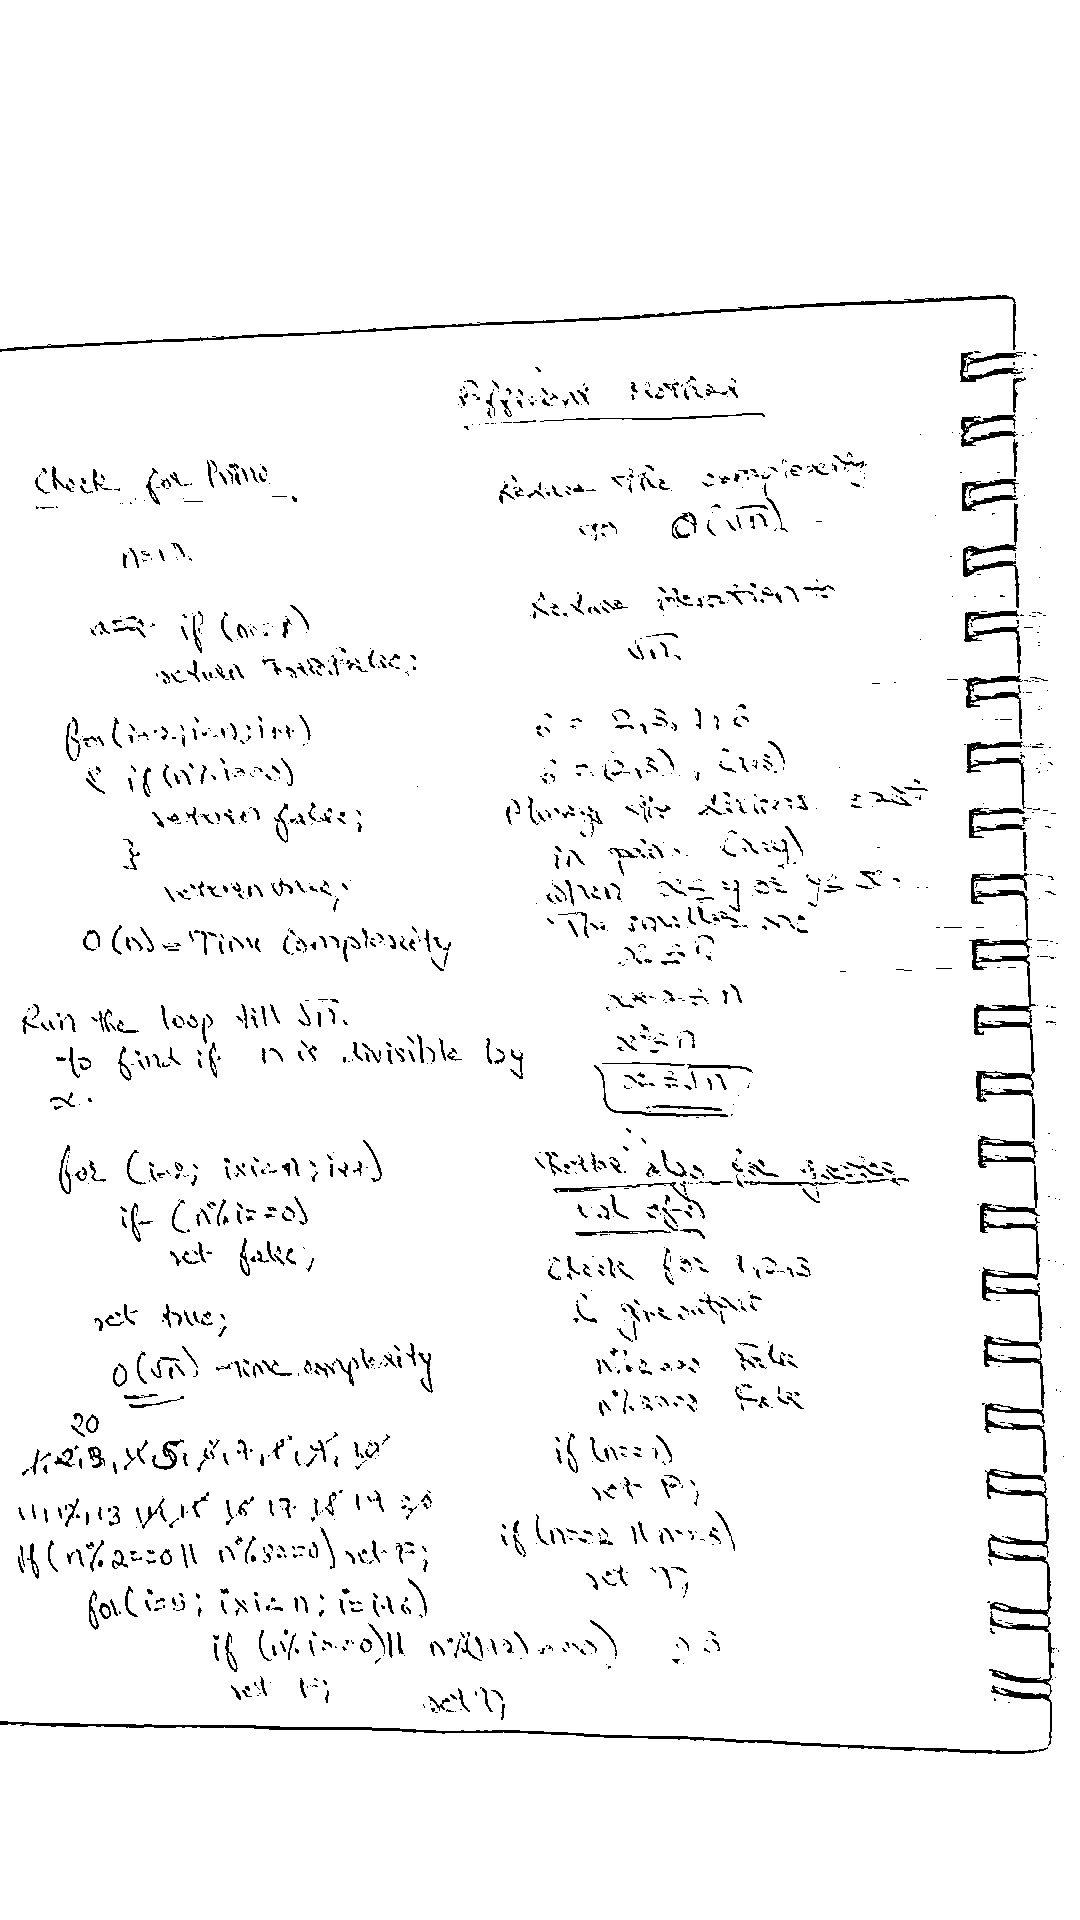 Efficient Method
Check for Prime
if (n==1)
return False;
for(i=2;i<n;i++)
{ if(n%i==0)
return false;
}
return true;
O(n) = Time Complexity
Run the loop till √n.
to find if n is divisible by
x.
for (i=2; i×i<=n; i++)
if (n%i==0)
ret false;
ret true;
O(√n) - Time complexity
20
1, 2, 3, 4, 5, 6, 7, 8, 9, 10
11, 12, 13 14 15 16 17 18 19 20
if(n%2==0 || n%3==0) ret F;
for(i=5; i×i<=n; i=i+6)
if (n%i==0)|| n%(i+2)==0)
ret F; ret T;
Reduce the complexity
O(√n)
Reduce iteration to
√n.
6 = 2,3, 1,6
6 = (2,3), (1,6)
the divisors
in pair (x,y)
when x≤y or y≤x.
The smaller one
x*x≤n
x²≤n
x≤√n
algo for
val of n
Check for 1,2,3
& give output
n%2==0 False
n%3==0 False
if (n==1)
ret F;
if (n==2 || n==3)
ret T;